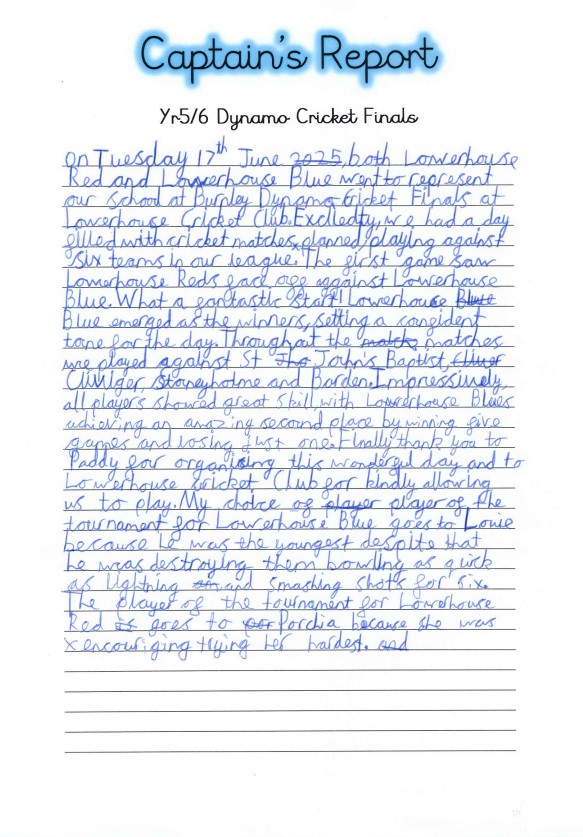 Captain's Report
Yr5/6 Dynamo Cricket Finals
On Tuesday 17th June 2025, both Lowerhouse
Red and Lowerhouse Blue went to represent
our school at Burnley Dynamo Cricket Finals at
Lowerhouse Cricket Club. Excitedly, we had a day
filled with cricket matches, planned, playing against
six teams in our league. The first game saw
Lowerhouse Reds face off against Lowerhouse
Blue. What a fantastic start! Lowerhouse Blue
Blue emerged as the winners, setting a confident
tone for the day. Throughout the matches
we played against St John's Baptist,
Cliviger, Stoneyholme and Barden. Impressively,
all players showed great skill with Lowerhouse Blues
achieving an amazing second place by winning five
games and losing just one. Finally thank you to
Paddy for organising this wonderful day and to
Lowerhouse cricket Club for kindly allowing
us to play. My choice of player player of the
tournament for Lowerhouse Blue goes to Louie
because he was the youngest despite that
he was destroying them bowling as quick
as lightning and smashing shots for six.
The player of the tournament for Lowerhouse
Red is goes to for Porchia because she was
encouriging trying her hardest. and